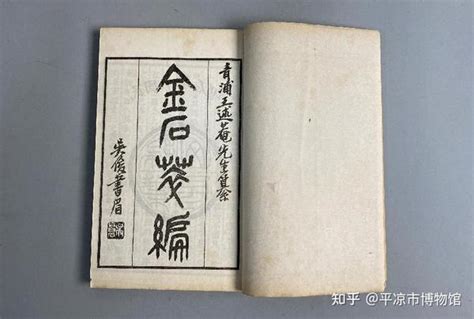 青浦王述菴先生纂
金石萃編
吳俊書眉
知乎 @平凉市博物馆